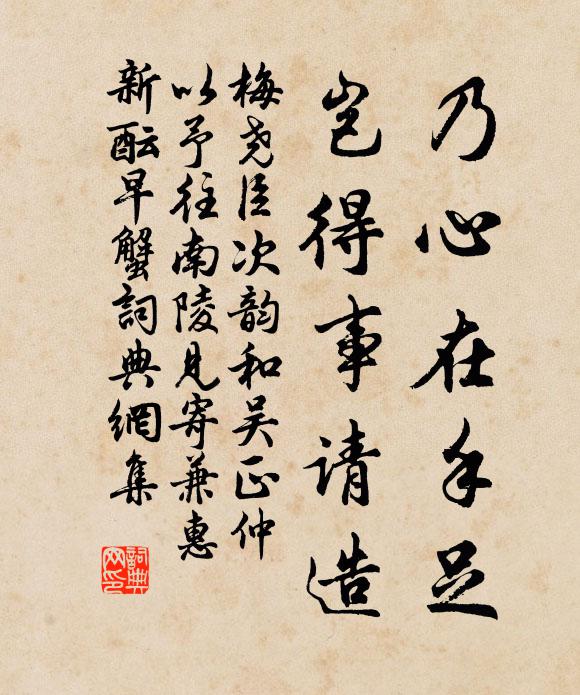 乃心在手足
岂得事请造
梅尧臣次韵和吴正仲
以予往南陵见寄兼惠
新酝早蟹詞典網集
詞典
网印